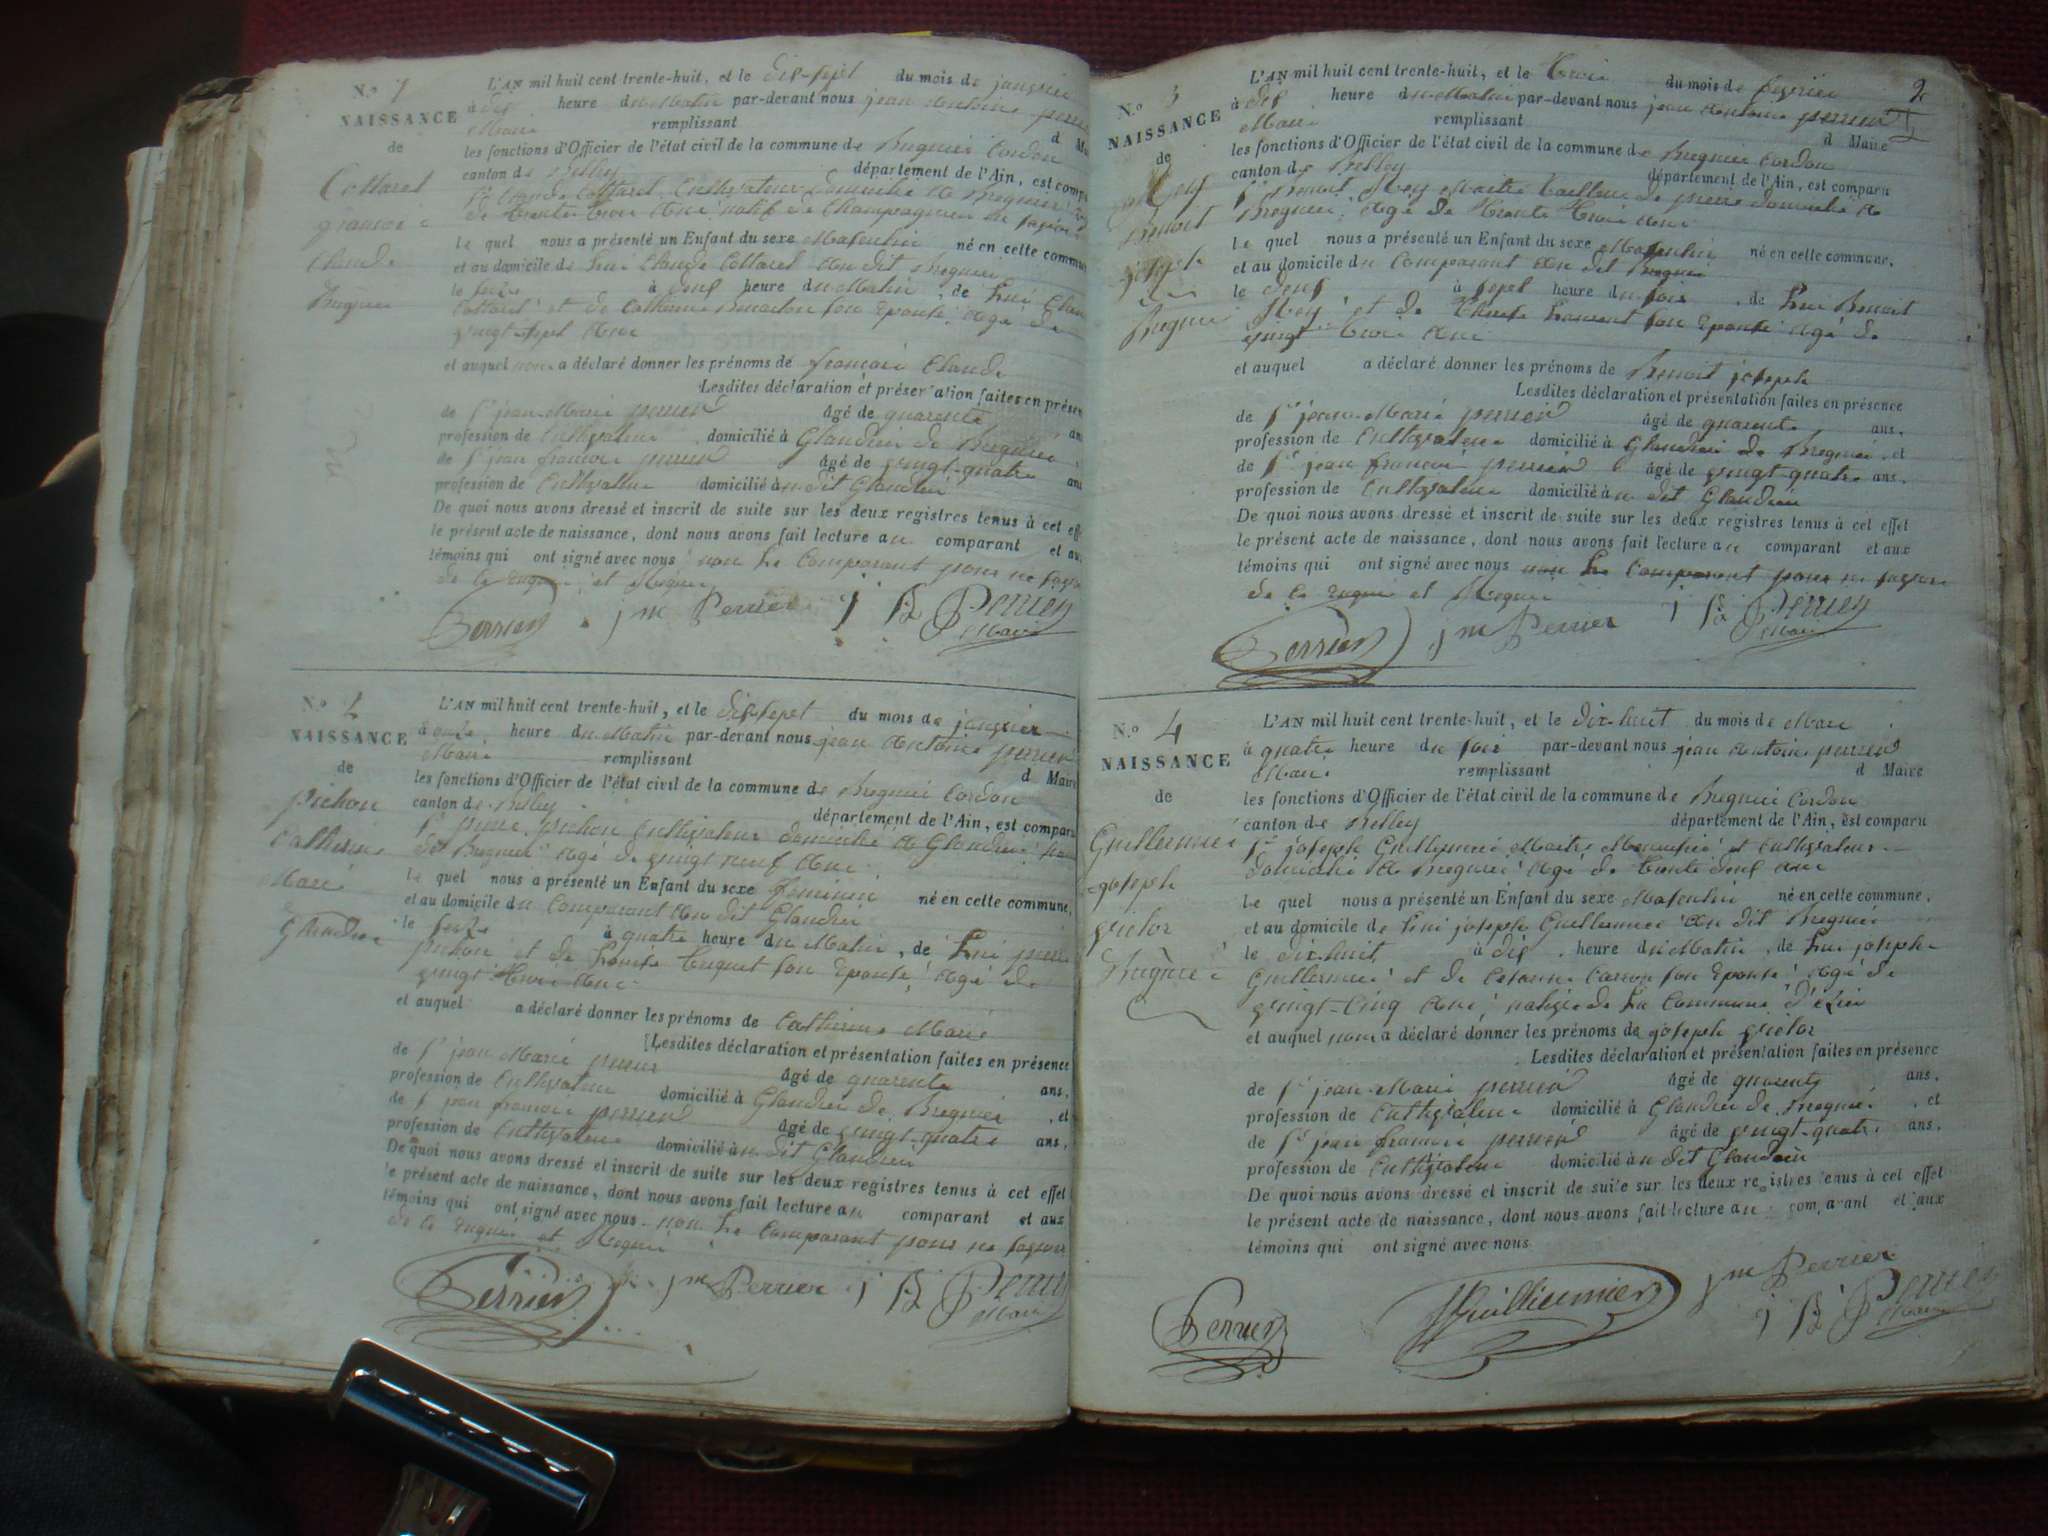 N.º 1
NAISSANCE
de
Cottarel
françois
Claude
Bregnier
L'AN mil huit cent trente-huit, et le dix-sept du mois de janvier
à dix heure du Matin par-devant nous jean Antoine perrier
Maire remplissant d Maire
les fonctions d'Officier de l'état civil de la commune de Bregnier Cordon
canton de Belley département de l'Ain, est comparu
Sr Claude Cottarel Cultivateur domicilié à Bregnier
de trente trois Ans natif de Champagneux en savoie
le quel nous a présenté un Enfant du sexe Masculin né en cette commune
et au domicile de lui Claude Cottarel Au dit Bregnier
le seize à heure du Matin, de lui Claude
Cottarel et de Catherine son Epouse Agé de
vingt-sept Ans
et auquel nous a déclaré donner les prénoms de françois Claude
Lesdites déclaration et présentation faites en présence
de Sr jean-Marie perrier âgé de quarente ans
profession de Cultivateur domicilié à Glandieu de Bregnier
de Sr jean françois perrier âgé de vingt-quatre ans
profession de Cultivateur domicilié au dit Glandieu
De quoi nous avons dressé et inscrit de suite sur les deux registres tenus à cet effet
le présent acte de naissance, dont nous avons fait lecture au comparant et aux
témoins qui ont signé avec nous non le Comparant pour ne savoir
de ce Enquis et Requis
Perrier jm Perrier Perrier
Maire
N.º 2
NAISSANCE
de
pichon
Catherine
Marie
Glandieu
L'AN mil huit cent trente-huit, et le dix-sept du mois de janvier
à onze heure du Matin par-devant nous jean Antoine perrier
Maire remplissant d Maire
les fonctions d'Officier de l'état civil de la commune de Bregnier Cordon
canton de Belley département de l'Ain, est comparu
Sr pierre pichon Cultivateur domicilié à Glandieu
dit Bregnier Agé de vingt neuf Ans
le quel nous a présenté un Enfant du sexe féminin né en cette commune,
et au domicile du Comparant Au dit Glandieu
le seize à quatre heure du Matin, de lui pierre
pichon et de son Epouse Agé de
vingt trois Ans
et auquel a déclaré donner les prénoms de Catherine Marie
Lesdites déclaration et présentation faites en présence
de Sr jean Marie perrier âgé de quarente ans,
profession de Cultivateur domicilié à Glandieu de Bregnier, et
de S jean françois perrier âgé de vingt-quatre ans,
profession de Cultivateur domicilié au dit Glandieu
De quoi nous avons dressé et inscrit de suite sur les deux registres tenus à cet effet
le présent acte de naissance, dont nous avons fait lecture au comparant et aux
témoins qui ont signé avec nous non le Comparant pour ne savoir
de ce Enquis et Requis
Perrier jm Perrier Perrier
Maire
2
N.º 3
NAISSANCE
de
Benoit
joseph
Bregnier
L'AN mil huit cent trente-huit, et le trois du mois de fevrier
à dix heure du Matin par-devant nous jean Antoine perrier
Maire remplissant d Maire
les fonctions d'Officier de l'état civil de la commune de Bregnier Cordon
canton de Belley département de l'Ain, est comparu
Sr Benoit Maitre tailleur de pierre domicilié à
Bregnier Agé de trente trois Ans
le quel nous a présenté un Enfant du sexe Masculin né en cette commune,
et au domicile du Comparant Au dit Bregnier
le deux à sept heure du soir, de lui Benoit
et de son Epouse Agé de
vingt trois Ans
et auquel a déclaré donner les prénoms de Benoit joseph
Lesdites déclaration et présentation faites en présence
de Sr jean-Marie perrier âgé de quarente ans,
profession de Cultivateur domicilié à Glandieu de Bregnier, et
de Sr jean françois perrier âgé de vingt-quatre ans,
profession de Cultivateur domicilié au dit Glandieu
De quoi nous avons dressé et inscrit de suite sur les deux registres tenus à cet effet
le présent acte de naissance, dont nous avons fait lecture au comparant et aux
témoins qui ont signé avec nous non le Comparant pour ne savoir
de ce Enquis et Requis
Perrier jm Perrier Perrier
Maire
N.º 4
NAISSANCE
de
Guillermier
joseph
victor
Bregnier
L'AN mil huit cent trente-huit, et le dix-huit du mois de Mars
à quatre heure du soir par-devant nous jean Antoine perrier
Maire remplissant d Maire
les fonctions d'Officier de l'état civil de la commune de Bregnier Cordon
canton de Belley département de l'Ain, est comparu
Sr joseph Guillermier Maitre Menuisier et Cultivateur
domicilié à Bregnier Agé de trente deux ans
le quel nous a présenté un Enfant du sexe Masculin né en cette commune,
et au domicile de lui joseph Guillermier Au dit Bregnier
le dix-huit à dix heure du Matin, de lui joseph
Guillermier et de son Epouse Agé de
vingt-cinq Ans, native de la Commune
et auquel nous a déclaré donner les prénoms de joseph victor
Lesdites déclaration et présentation faites en présence
de Sr jean-Marie perrier âgé de quarente ans,
profession de Cultivateur domicilié à Glandieu de Bregnier, et
de Sr jean françois perrier âgé de vingt-quatre ans,
profession de Cultivateur domicilié au dit Glandieu
De quoi nous avons dressé et inscrit de suite sur les deux registres tenus à cet effet
le présent acte de naissance, dont nous avons fait lecture au comparant et aux
témoins qui ont signé avec nous
jm Perrier
Perrier Guilliermier Perrier
Maire